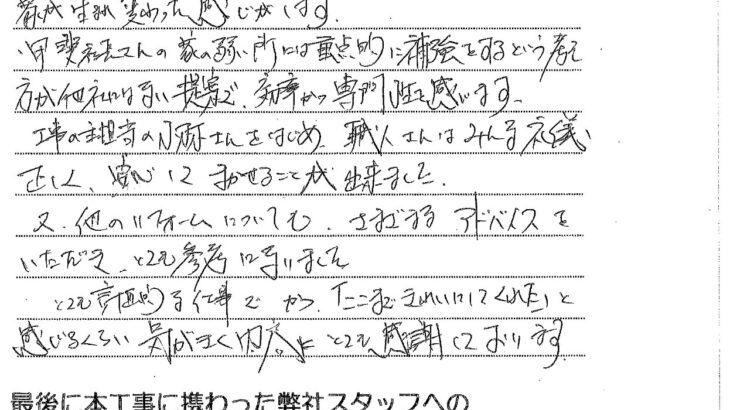 生まれ変わった感じがします。
甲斐社長さんの家の弱い所には重点的に補強をするという考え
方が他社にはない提案で、実践かつ専門性を感じます。
工事の主担当の さんをはじめ、職人さんはみんな礼儀
正しく、安心してまかせることが出来ました。
又、他のリフォームについても、さまざまなアドバイスを
いただき、とても参考になりました
とても計画的な仕事でかつ、「ここまできれいにしてくれた」と
感じるくらい気がきく内容にとても感謝しております。
最後に本工事に携わった弊社スタッフへの